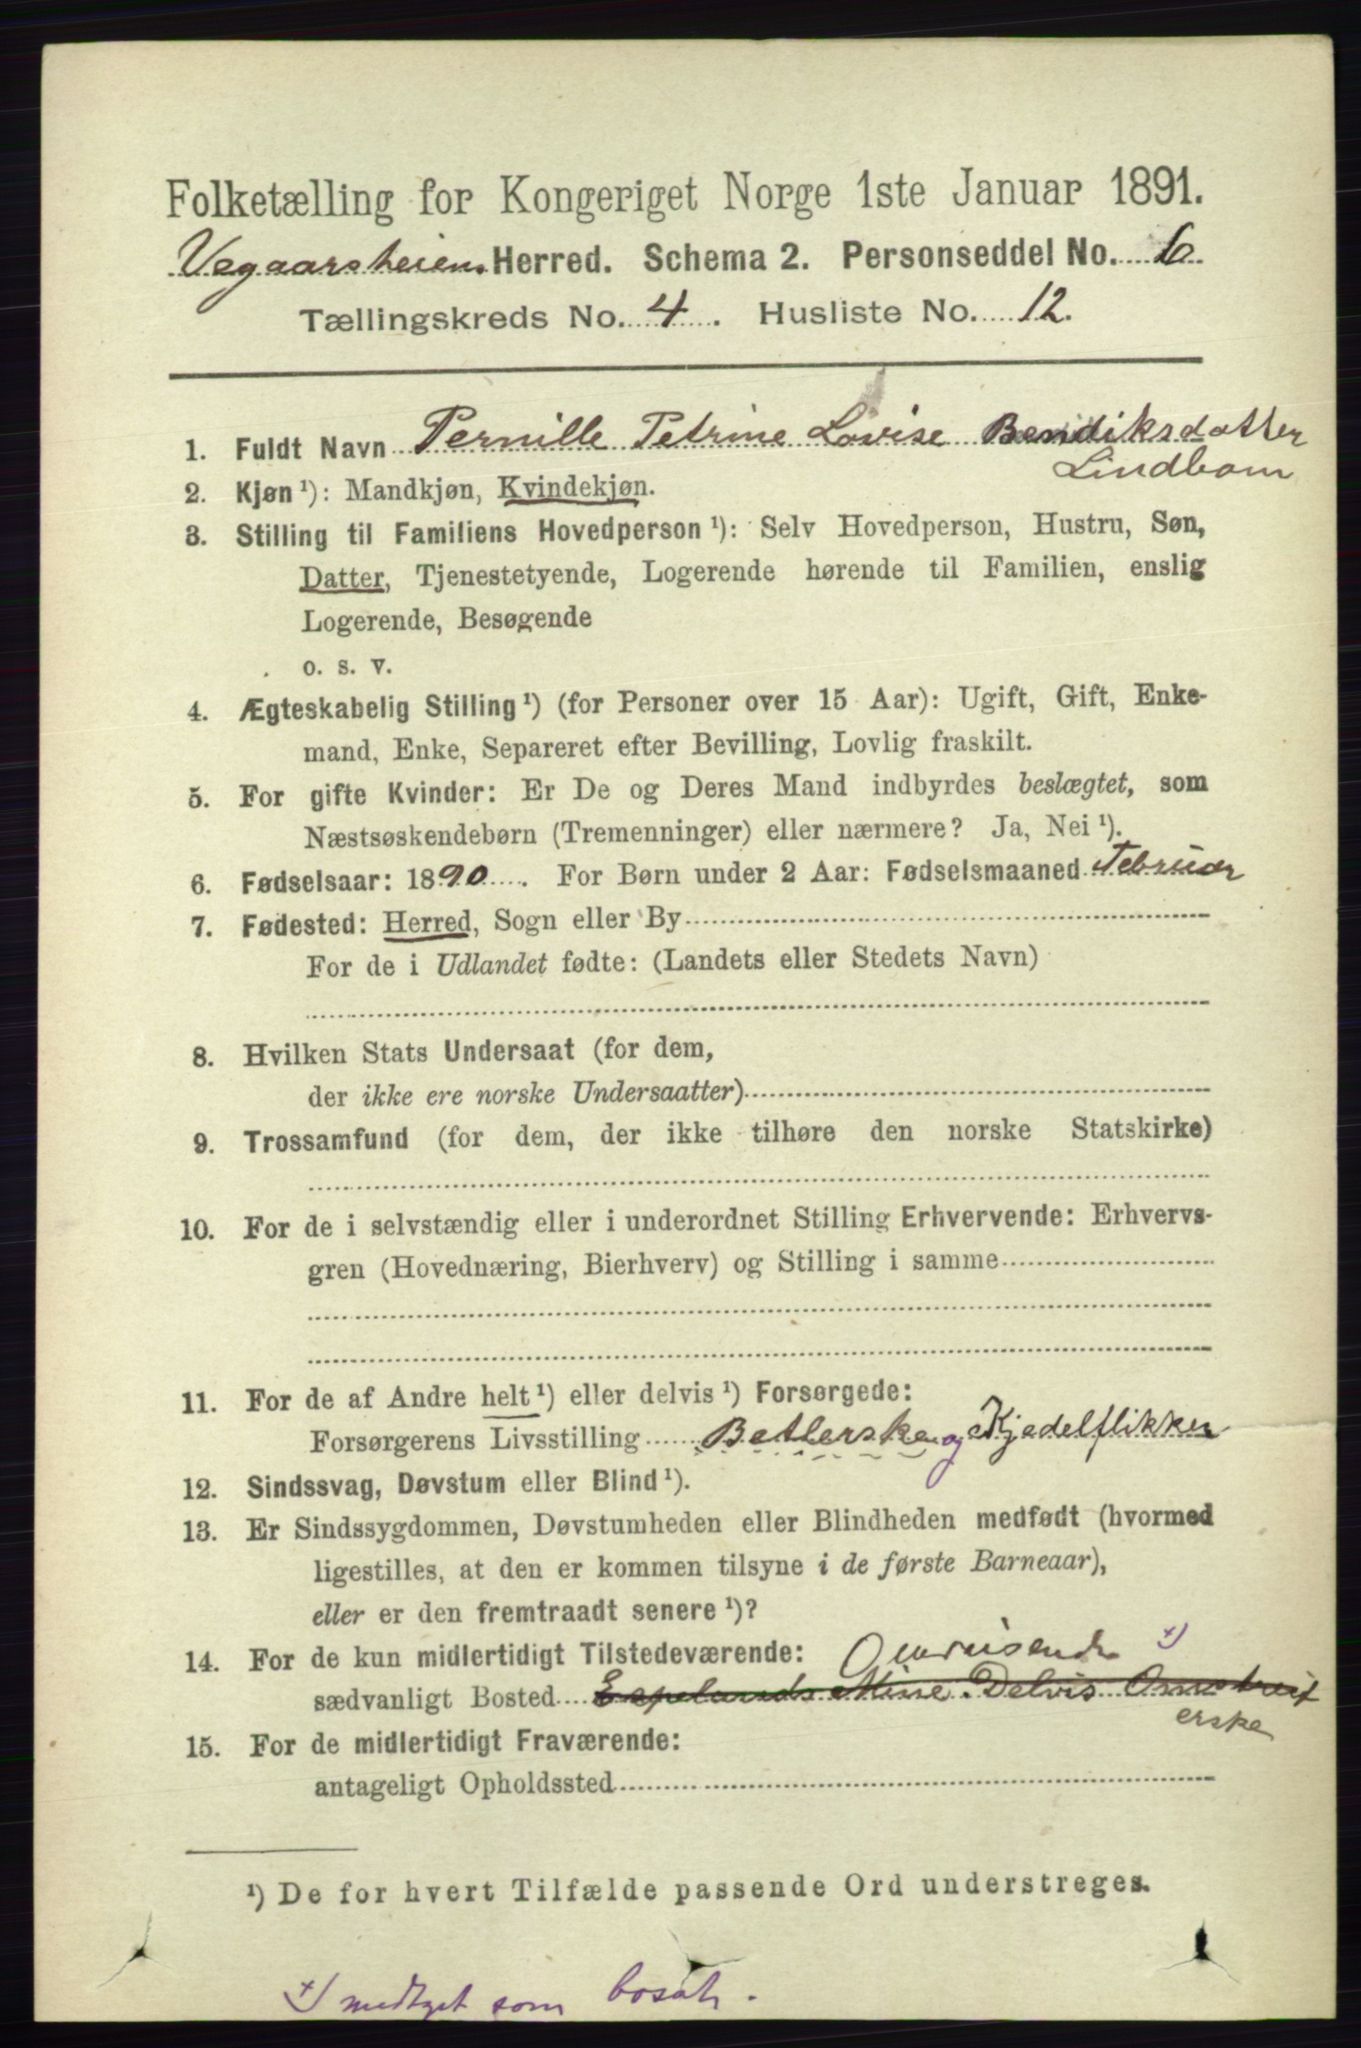 Folketælling for Kongeriget Norge 1ste Januar 1891.
Vegaarsheien Herred. Schema 2. Personseddel No. 6.
Tællingskreds No. 4. Husliste No. 12.
1. Fuldt Navn Pernille Petrine Lovise Bendiksdatter
Lindbom
2. Kjøn ¹): Mandkjøn, Kvindekjøn.
3. Stilling til Familiens Hovedperson ¹): Selv Hovedperson, Hustru, Søn,
Datter, Tjenestetyende, Logerende hørende til Familien, enslig
Logerende, Besøgende
o. s. v.
4. Ægteskabelig Stilling ¹) (for Personer over 15 Aar): Ugift, Gift, Enke-
mand, Enke, Separeret efter Bevilling, Lovlig fraskilt.
5. For gifte Kvinder: Er De og Deres Mand indbyrdes beslægtet, som
Næstsøskendebørn (Tremenninger) eller nærmere? Ja, Nei ¹).
6. Fødselsaar: 1890. For Børn under 2 Aar: Fødselsmaaned Februar
7. Fødested: Herred, Sogn eller By
For de i Udlandet fødte: (Landets eller Stedets Navn)
8. Hvilken Stats Undersaat (for dem,
der ikke ere norske Undersaatter)
9. Trossamfund (for dem, der ikke tilhøre den norske Statskirke)
10. For de i selvstændig eller i underordnet Stilling Erhvervende: Erhvervs-
gren (Hovednæring, Bierhverv) og Stilling i samme
11. For de af Andre helt ¹) eller delvis ¹) Forsørgede:
Forsørgerens Livsstilling Betlerske og Kjedelflikker
12. Sindssvag, Døvstum eller Blind ¹).
13. Er Sindssygdommen, Døvstumheden eller Blindheden medfødt (hvormed
ligestilles, at den er kommen tilsyne i de første Barneaar),
eller er den fremtraadt senere ¹)?
14. For de kun midlertidigt Tilstedeværende: Omreisende +)
sædvanligt Bosted Espelands Mine. Delvis Omstreif
erske
15. For de midlertidigt Fraværende:
antageligt Opholdssted
¹) De for hvert Tilfælde passende Ord understreges.
+) medtget som bosat.